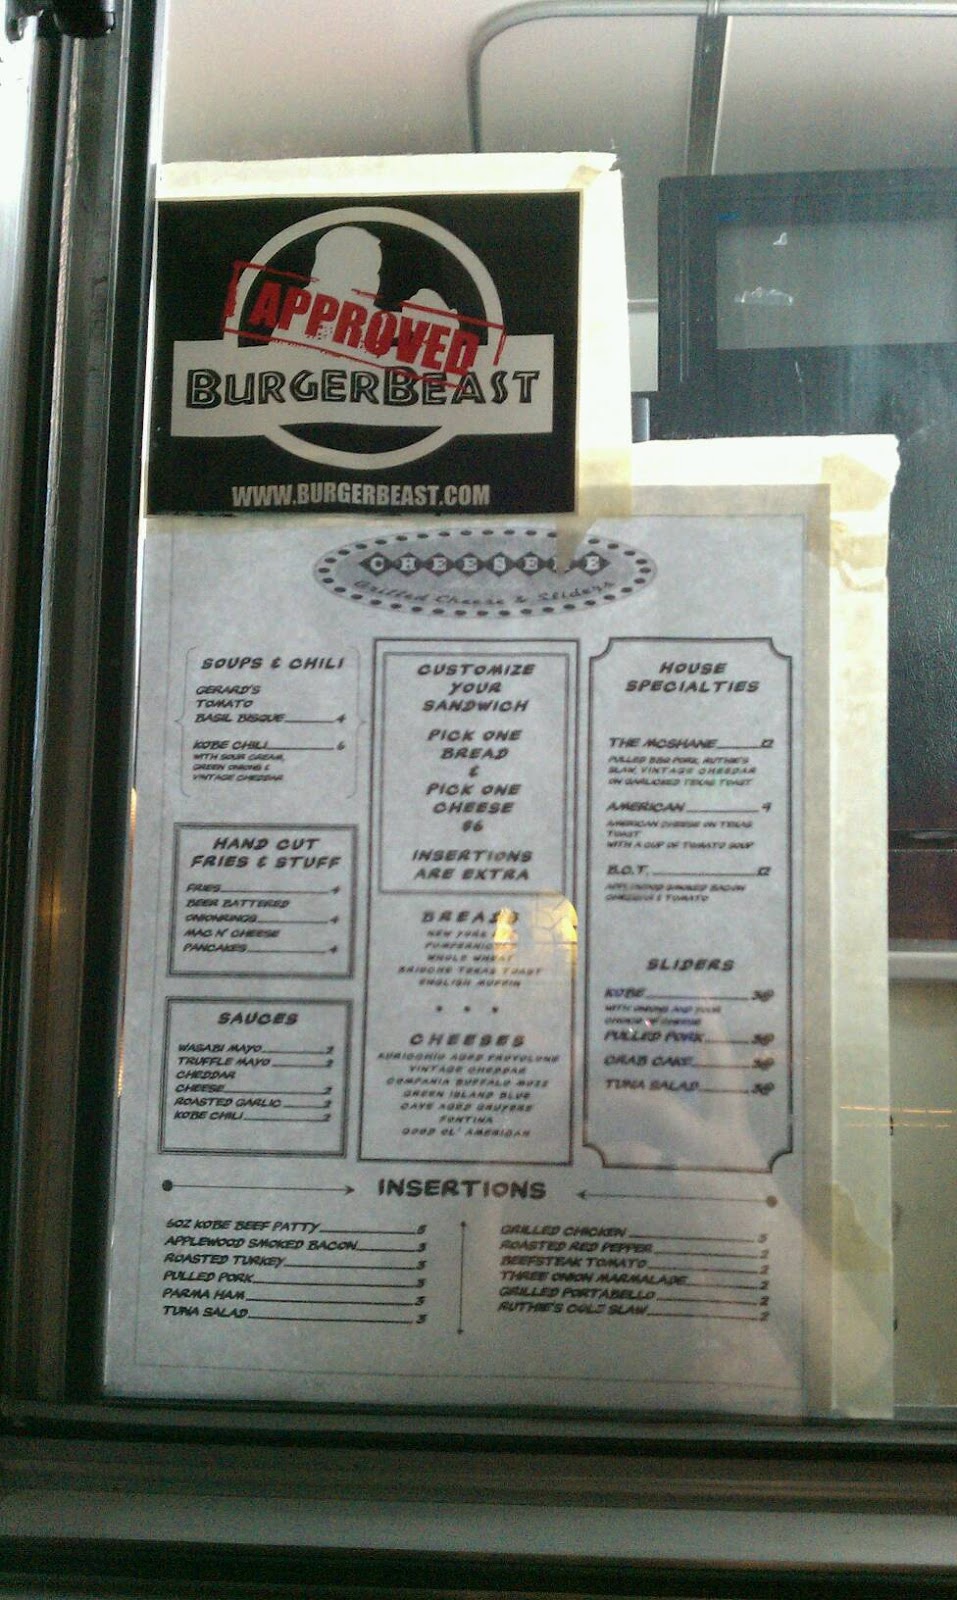 APPROVED
BURGERBEAST
WWW.BURGERBEAST.COM
Grilled Cheese & Sliders
SOUPS & CHILI
GERARD'S
TOMATO
BASIL BISQUE 4
KOBE CHILI 6
WITH SOUR CREAM,
GREEN ONIONS &
VINTAGE CHEDDAR
HAND CUT
FRIES & STUFF
FRIES 4
BEER BATTERED
ONIONRINGS 4
MAC N' CHEESE
PANCAKES 4
SAUCES
WASABI MAYO 2
TRUFFLE MAYO 2
CHEDDAR
CHEESE 2
ROASTED GARLIC 2
KOBE CHILI 2
CUSTOMIZE
YOUR
SANDWICH
PICK ONE
BREAD
&
PICK ONE
CHEESE
$6
INSERTIONS
ARE EXTRA
BREADS
NEW YORK
WHOLE WHEAT
BRIOCHE TEXAS TOAST
ENGLISH MUFFIN
CHEESES
AURICCHIO AGED PROVOLONE
VINTAGE CHEDDAR
COMPANIA BUFFALO MOZZ
GREEN ISLAND BLUE
CAVE AGED GRUYERE
FONTINA
GOOD OL' AMERICAN
HOUSE
SPECIALTIES
THE MCSHANE 12
PULLED BBQ PORK, RUTHIE'S
SLAW, VINTAGE CHEDDAR
ON GARLICKED TEXAS TOAST
AMERICAN 9
AMERICAN CHEESE ON TEXAS
TOAST
WITH A CUP OF TOMATO SOUP
B.O.T. 12
APPLEWOOD SMOKED BACON
& TOMATO
SLIDERS
KOBE
WITH ONIONS AND YOUR
CHOICE OF CHEESE
PULLED PORK
CRAB CAKE
TUNA SALAD
INSERTIONS
6OZ KOBE BEEF PATTY 5
APPLEWOOD SMOKED BACON 3
ROASTED TURKEY 3
PULLED PORK 3
PARMA HAM 3
TUNA SALAD 3
GRILLED CHICKEN 3
ROASTED RED PEPPER 2
BEEFSTEAK TOMATO 2
THREE ONION MARMALADE 2
GRILLED PORTABELLO 2
RUTHIE'S COLE SLAW 2